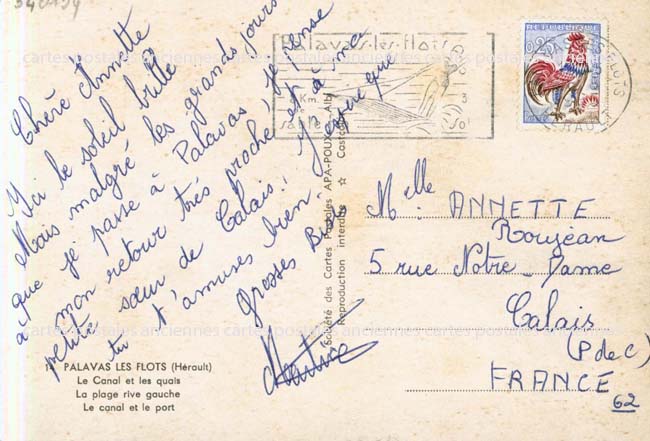 Chère Annette
Ici le soleil brille
Mais malgré les grands jours
que je passe à Palavas je pense
à mon retour très proche et à ma
petite sœur de Calais. J'espère que
tu t'amuses bien
Grosses Bises
Martine
14 PALAVAS LES FLOTS (Hérault)
Le Canal et les quais
La plage rive gauche
Le canal et le port
Société des Cartes Postales APA-POUX - Albi
Reproduction interdite ☆ Castres
Palavas-les-flots
8 Km
sable
0,25
Melle ANNETTE
Roujean
5 rue Notre-Dame
Calais
(P de C)
FRANCE
62
cartes postales anciennes cartes postales